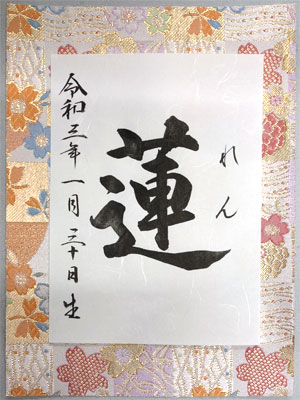 れん
蓮
令和三年一月三十日生